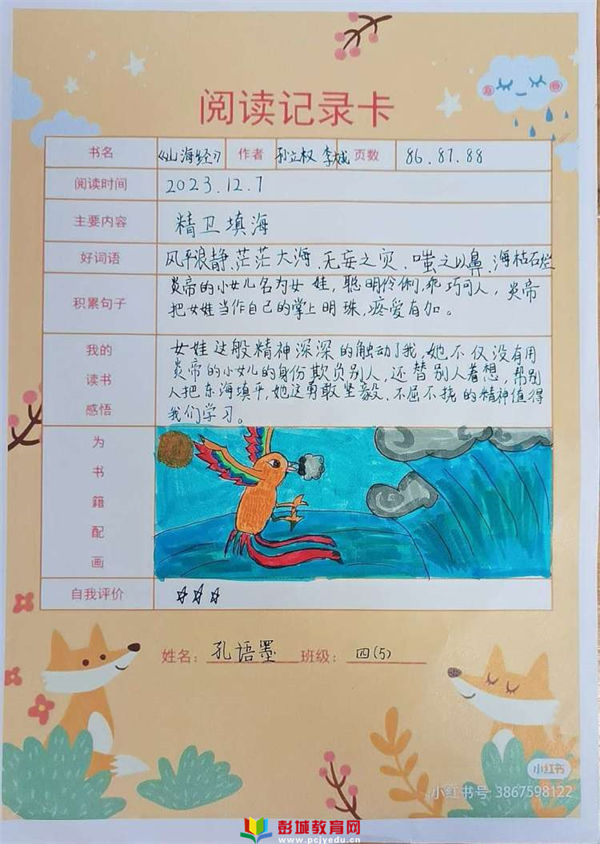 阅读记录卡
书名 《山海经》 作者 孙立权 李城 页数 86.87.88
阅读时间 2023.12.7
主要内容 精卫填海
好词语 风平浪静、茫茫大海、无妄之灾、嗤之以鼻、海枯石烂
积累句子 炎帝的小女儿名为女娃,聪明伶俐,乖巧可人,炎帝
把女娃当作自己的掌上明珠,疼爱有加。
我的读书感悟 女娃这般精神深深的触动了我,她不仅没有用
炎帝的小女儿的身份欺负别人,还替别人着想,帮别
人把东海填平,她这勇敢坚毅,不屈不挠的精神值得
我们学习。
为书籍配画
自我评价 ☆☆☆
姓名:孔语墨 班级:四(5)
小红书
小红书号:3867598122
彭城教育网
www.pcjyedu.cn